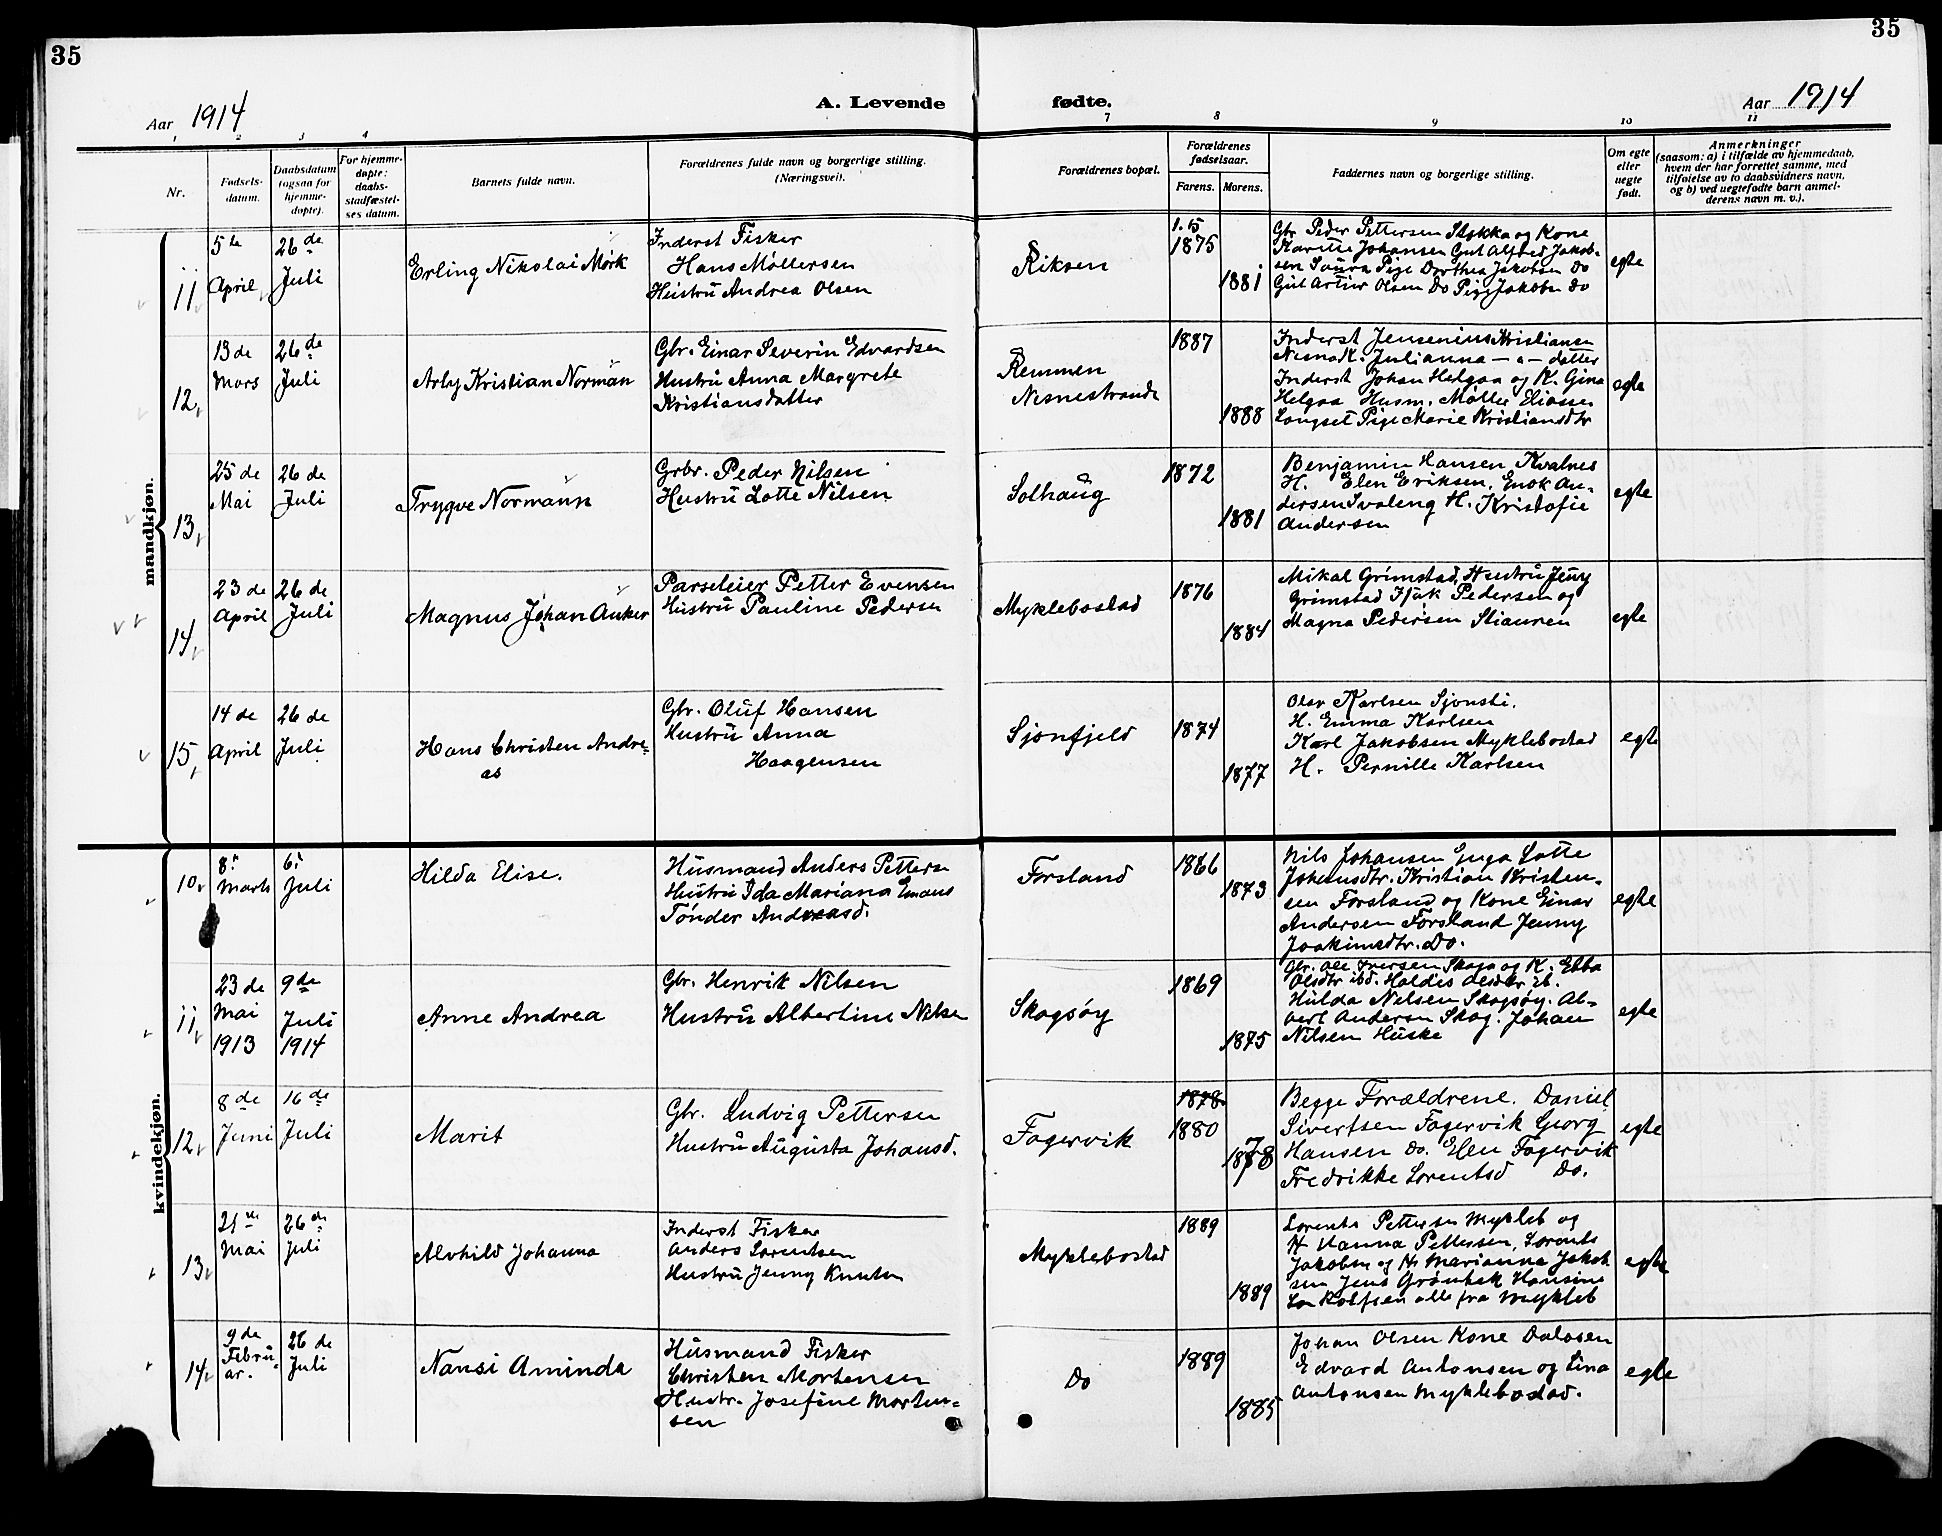 35
35
Aar 1914
A. Levende
fødte.
Aar 1914
1 2 3 4 7 8 9 10 11
Nr.
Fødsels-
datum.
Daabsdatum
(ogsaa for
hjemme-
døpte).
For hjemme-
døpte:
daabs-
stadfæstel-
ses datum.
Barnets fulde navn.
Forældrenes fulde navn og borgerlige stilling.
(Næringsvei).
Forældrenes bopæl.
Forældrenes
fødselsaar.
Farens. Morens.
Faddernes navn og borgerlige stilling.
Om egte
eller
uegte
født.
Anmerkninger
(saasom: a) i tilfælde av hjemmedaab,
hvem der har forrettet samme, med
tilføielse av to daabsvidners navn,
og b) ved uegtefødte barn anmel-
derens navn m. v.).
mandkjøn.
11
5te
April
26de
Juli
Erling Nikolai Mørk
Inderst Fisker
Hans Møllersen
Hustru Andrea Olsen
Riksen
1875
1881
Gbr Peder Pettersen Stokka og Kone
Johansen Gut Alfred Jakob-
sen Pige Dorthea Jakobsen Do
Gut Artur Olsen Do Pige Jakobsen Do
egte
12
13de
Mars
26de
Juli
Arly Kristian Norman
Gbr. Einar Severin Edvardsen
Hustru Anna Margrete
Kristiansdatter
Remmen
Nesnestrande
1887
1888
Inderst Jensenius Kristiansen
Julianna - " - datter
Inderst Johan Helgaa og K. Gina
Helgaa Husm. Møller Eliassen
Langset Pige Marie Kristiansdtr
egte
13
25de
Mai
26de
Juli
Trygve Normann
Grbr. Peder Nilsen
Hustru Lotte Nilsen
Solhaug
1872
1881
Benjamin Hansen Kvalnes
H. Elen Eriksen, Enok An-
dersen Svaleng H. Kristofie
Andersen
egte
14
23de
April
26de
Juli
Magnus Johan Anker
Parseleier Petter Evensen
Hustru Pauline Pedersen
Myklebostad
1876
1884
Mikal Grimstad, Hustru Jeny
Grimstad Isak Pedersen og
Magna Pedersen Stiauren
egte
15
14de
April
26de
Juli
Hans Christen Andre-
as
Gbr. Oluf Hansen
Hustru Anna
Haagensen
Sjonfjeld
1874
1877
Olav Karlsen Sjonsti.
H. Emma Karlsen
Karl Jakobsen Myklebostad
H. Pernille Karlsen
egte
kvindekjøn.
10
8
Marts
6
Juli
Hilda Elise.
Husmand Anders Petters
Hustru Ida Mariana Emans
Tønder Andreasd.
Forsland
1866
1873
Nils Johansen Enga Lotte
Johansdtr. Kristian Kristen-
sen Forsland og Kone Einar
Andersen Forsland Jenny
Joakimsdtr. Do.
egte
11
23de
Mai
1913
9de
Juli
1914
Anne Andrea
Gbr. Henrik Nilsen
Hustru Albertine Nilse
Skogsøy
1869
1875
Gbr. Ole Iversen Skaga og K. Ebba
Olsdtr ibd. Haldis Olsdtr Ib.
Hulda Nilsen Skogsøy. Al-
bert Andersen Skog. Johan
Nilsen Huske
egte
12
8de
Juni
16de
Juli
Marit
Gbr. Ludvig Pettersen
Hustru Augusta Johansd.
Fagervik
1878
1880
1878
Begge Forældrene. Daniel
Sivertsen Fagervik Georg
Hansen Do. Elen Fagervik
Fredrikke Lorentsd Do.
egte
13
21de
Mai
26de
Juli
Alvhild Johanna
Inderst Fisker
Anders Lorentsen
Hustru Jenny Knutsen
Myklebostad
1889
1889
Lorents Pettersen Mykleb og
H Hanna Pettersen, Lorents
Jakobsen og H. Marianna Jakob
sen Jens Hansine
alle fra Mykleb
egte
14
9de
Febru-
ar.
26de
Juli
Nansi Aminda
Husmand Fisker
Christen Mortensen
Hustr. Josefine Morten-
sen
Do
1889
1885
Johan Olsen Kone Dalosen
Edvard Antonsen og Lina
Antonsen Myklebostad.
egte